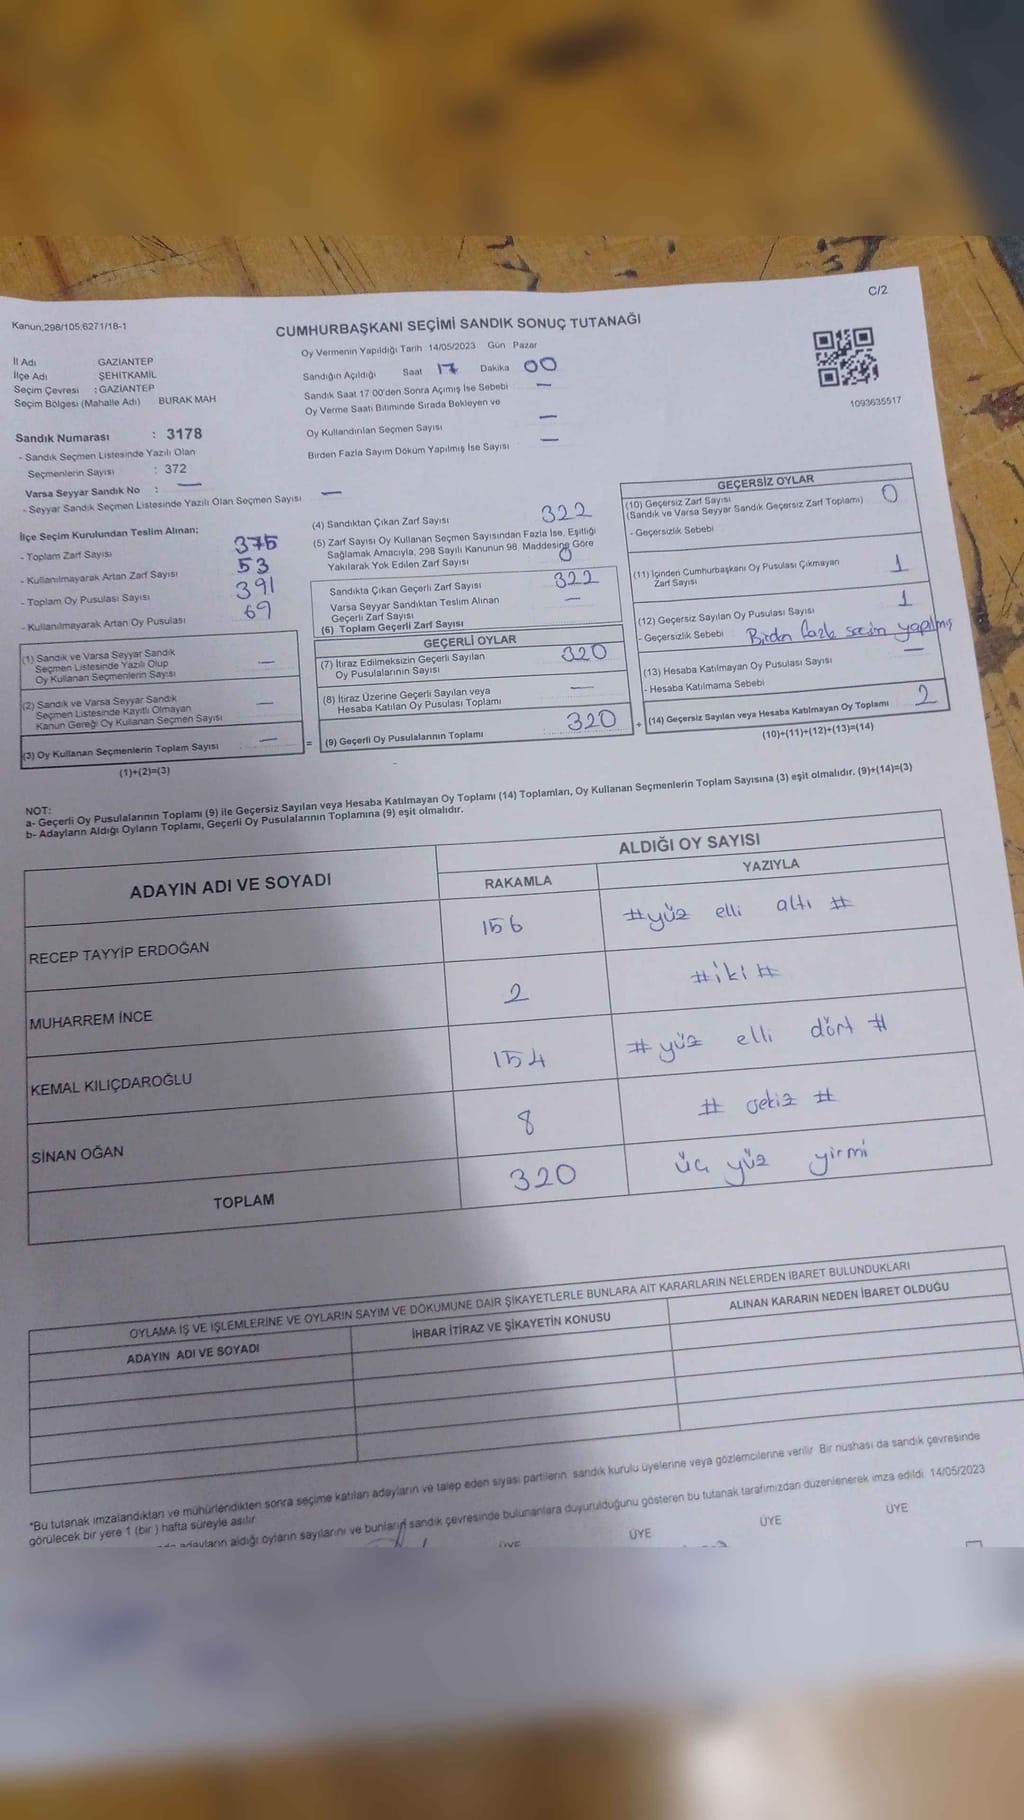 C/2
Kanun;298/105;6271/18-1
CUMHURBAŞKANI SEÇİMİ SANDIK SONUÇ TUTANAĞI
İl Adı GAZİANTEP
İlçe Adı ŞEHİTKAMİL
Seçim Çevresi : GAZİANTEP
Seçim Bölgesi (Mahalle Adı) BURAK MAH
Sandık Numarası : 3178
- Sandık Seçmen Listesinde Yazılı Olan
Seçmenlerin Sayısı : 372
Varsa Seyyar Sandık No : —
- Seyyar Sandık Seçmen Listesinde Yazılı Olan Seçmen Sayısı —
Oy Vermenin Yapıldığı Tarih 14/05/2023 Gün Pazar
Sandığın Açıldığı Saat 17 Dakika 00
Sandık Saat 17:00'den Sonra Açımış İse Sebebi —
Oy Verme Saati Bitiminde Sırada Bekleyen ve
Oy Kullandırılan Seçmen Sayısı —
Birden Fazla Sayım Döküm Yapılmış İse Sayısı —
1093635517
İlçe Seçim Kurulundan Teslim Alınan;
- Toplam Zarf Sayısı 375
- Kullanılmayarak Artan Zarf Sayısı 53
- Toplam Oy Pusulası Sayısı 391
- Kullanılmayarak Artan Oy Pusulası 69
(1) Sandık ve Varsa Seyyar Sandık
Seçmen Listesinde Yazılı Olup
Oy Kullanan Seçmenlerin Sayısı —
(2) Sandık ve Varsa Seyyar Sandık
Seçmen Listesinde Kayıtlı Olmayan
Kanun Gereği Oy Kullanan Seçmen Sayısı —
(3) Oy Kullanan Seçmenlerin Toplam Sayısı —
(1)+(2)=(3)
(4) Sandıktan Çıkan Zarf Sayısı 322
(5) Zarf Sayısı Oy Kullanan Seçmen Sayısından Fazla İse, Eşitliği
Sağlamak Amacıyla, 298 Sayılı Kanunun 98. Maddesine Göre
Yakılarak Yok Edilen Zarf Sayısı 0
Sandıkta Çıkan Geçerli Zarf Sayısı 322
Varsa Seyyar Sandıktan Teslim Alınan
Geçerli Zarf Sayısı —
(6) Toplam Geçerli Zarf Sayısı
GEÇERLİ OYLAR
(7) İtiraz Edilmeksizin Geçerli Sayılan
Oy Pusulalarının Sayısı 320
(8) İtiraz Üzerine Geçerli Sayılan veya
Hesaba Katılan Oy Pusulası Toplamı —
= (9) Geçerli Oy Pusulalarının Toplamı 320
GEÇERSİZ OYLAR
(10) Geçersiz Zarf Sayısı
(Sandık ve Varsa Seyyar Sandık Geçersiz Zarf Toplamı) 0
- Geçersizlik Sebebi
(11) İçinden Cumhurbaşkanı Oy Pusulası Çıkmayan
Zarf Sayısı 1
(12) Geçersiz Sayılan Oy Pusulası Sayısı 1
- Geçersizlik Sebebi Birden fazla seçim yapılmış
(13) Hesaba Katılmayan Oy Pusulası Sayısı —
- Hesaba Katılmama Sebebi
+ (14) Geçersiz Sayılan veya Hesaba Katılmayan Oy Toplamı 2
(10)+(11)+(12)+(13)=(14)
NOT:
a- Geçerli Oy Pusulalarının Toplamı (9) ile Geçersiz Sayılan veya Hesaba Katılmayan Oy Toplamı (14) Toplamları, Oy Kullanan Seçmenlerin Toplam Sayısına (3) eşit olmalıdır. (9)+(14)=(3)
b- Adayların Aldığı Oyların Toplamı, Geçerli Oy Pusulalarının Toplamına (9) eşit olmalıdır.
ADAYIN ADI VE SOYADI ALDIĞI OY SAYISI
RAKAMLA YAZIYLA
RECEP TAYYİP ERDOĞAN 156 #yüz elli altı #
MUHARREM İNCE 2 #iki #
KEMAL KILIÇDAROĞLU 154 # yüz elli dört #
SİNAN OĞAN 8 # sekiz #
TOPLAM 320 üç yüz yirmi
OYLAMA İŞ VE İŞLEMLERİNE VE OYLARIN SAYIM VE DÖKÜMÜNE DAİR ŞİKAYETLERLE BUNLARA AİT KARARLARIN NELERDEN İBARET BULUNDUKLARI
ADAYIN ADI VE SOYADI İHBAR İTİRAZ VE ŞİKAYETİN KONUSU ALINAN KARARIN NEDEN İBARET OLDUĞU
*Bu tutanak imzalandıktan ve mühürlendikten sonra seçime katılan adayların ve talep eden siyasi partilerin sandık kurulu üyelerine veya gözlemcilerine verilir. Bir nüshası da sandık çevresinde
görülecek bir yere 1 (bir ) hafta süreyle asılır.
adayların aldığı oyların sayılarını ve bunların sandık çevresinde bulunanlara duyurulduğunu gösteren bu tutanak tarafımızdan düzenlenerek imza edildi. 14/05/2023
ÜYE ÜYE ÜYE ÜYE